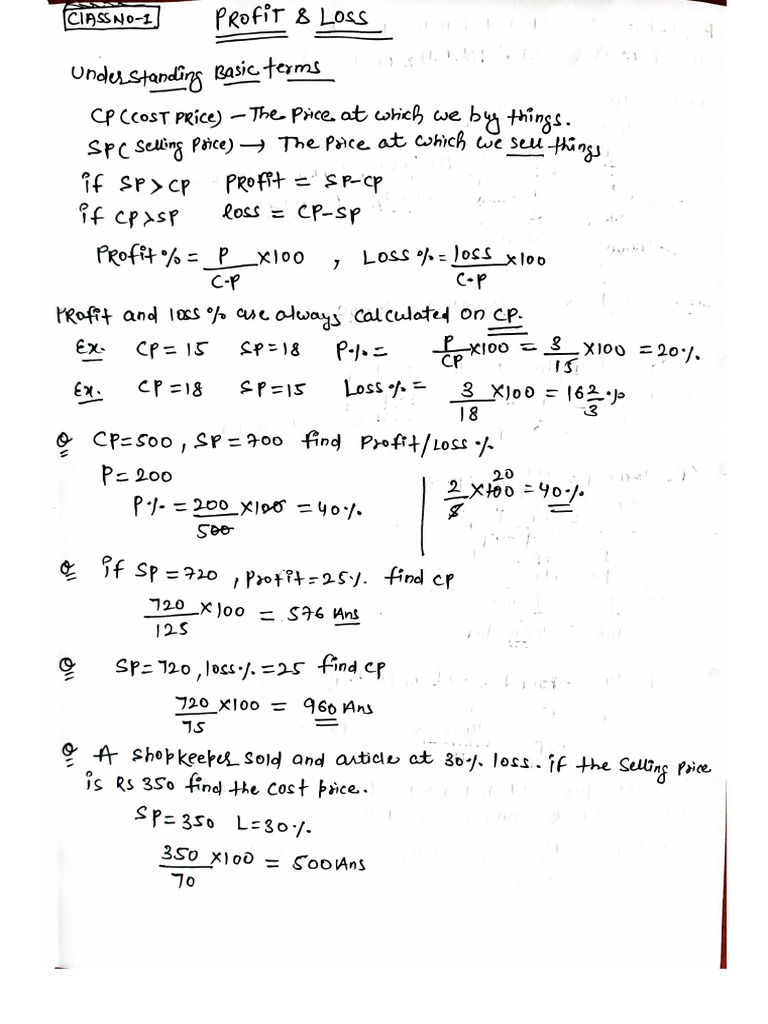 CLASS NO-1 PROFIT & LOSS
Understanding Basic terms
CP (COST PRICE) – The Price at which we buy things.
SP ( Selling Price) → The Price at which we sell things
if SP > CP Profit = SP-CP
if CP > SP loss = CP-SP
Profit % = P/C.P × 100 , Loss % = loss/C.P × 100
Profit and loss % are always calculated on CP.
Ex. CP = 15 SP = 18 P.% = P/CP × 100 = 3/15 × 100 = 20%.
Ex. CP = 18 SP = 15 Loss % = 3/18 × 100 = 16 2/3 %
Q CP=500, SP = 700 find Profit/Loss %
P = 200
P% = 200/500 × 100 = 40%
2/5 × 100 20 = 40%.
Q if SP = 720, Profit = 25% find CP
720/125 × 100 = 576 Ans
Q SP = 720, loss % = 25 find CP
720/75 × 100 = 960 Ans
Q A shopkeeper sold and article at 30% loss. if the Selling Price
is RS 350 find the cost price.
SP = 350 L = 30%.
350/70 × 100 = 500 Ans